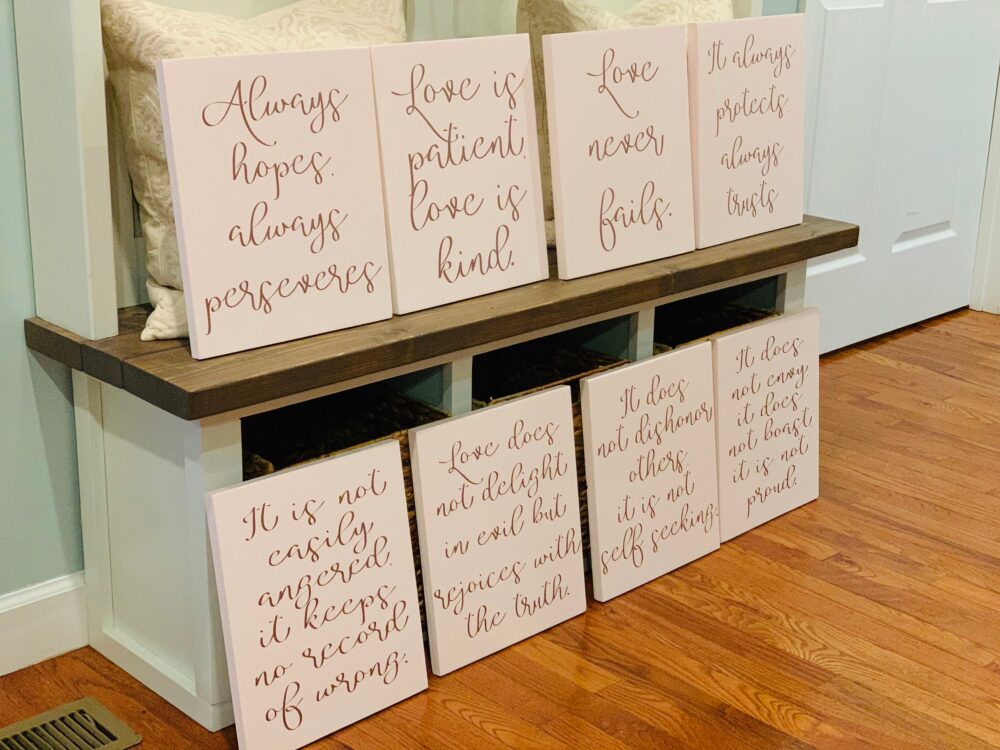 Always
hopes.
always
perseveres
Love is
patient.
love is
kind.
Love
never
fails.
It always
protects.
always
trusts
It is not
easily
angered.
it keeps
no record
of wrong.
Love does
not delight
in evil but
rejoices with
the truth.
It does
not dishonor
others
it is not
self seeking.
It does
not envy.
it does
not boast
it is not
proud.